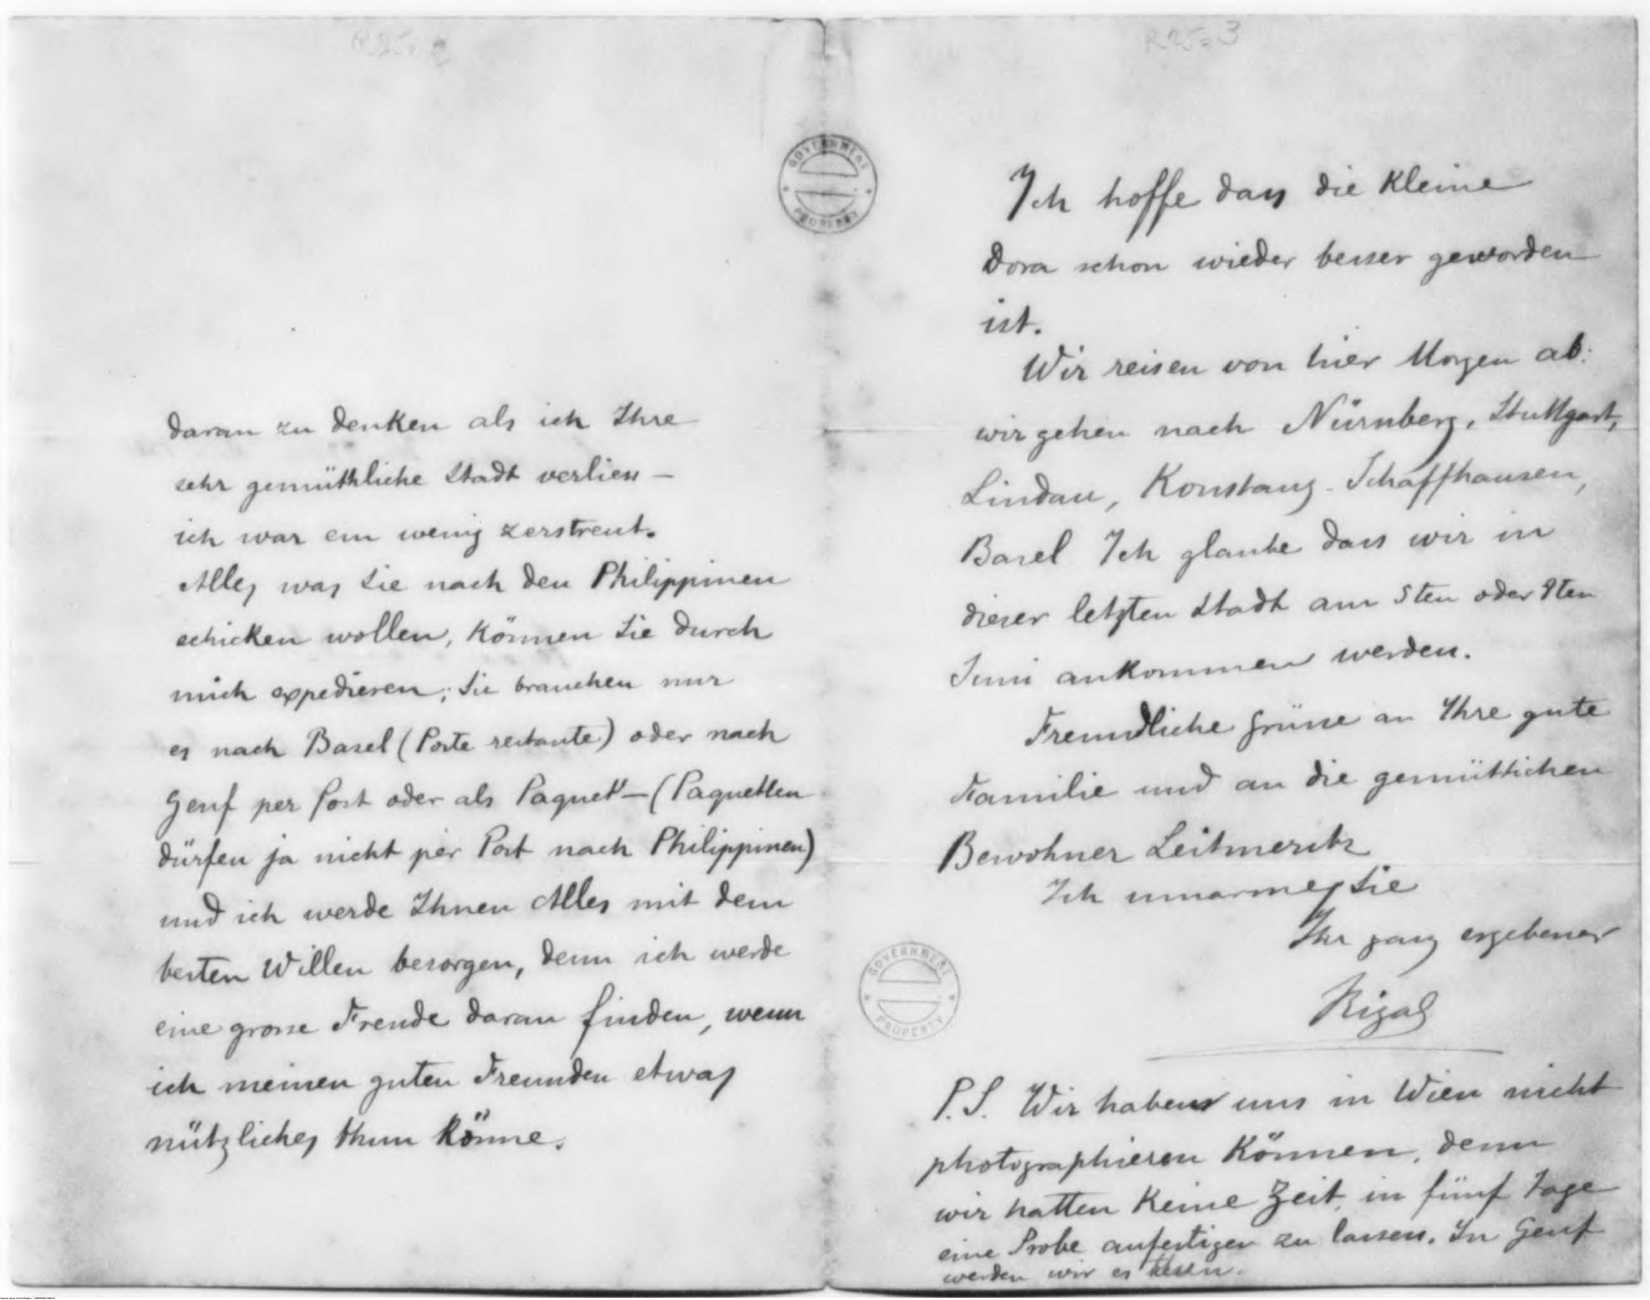 R25=2
daran zu denken als ich Ihre
sehr gemüthliche Stadt verliess —
ich war ein wenig zerstreut.
Alles was Sie nach den Philippinen
schicken wollen, können Sie durch
mich expedieren; Sie brauchen nur
es nach Basel (Poste restante) oder nach
Genf per Post oder als Paquet — (Paquetten
dürfen ja nicht per Post nach Philippinen)
und ich werde Ihnen Alles mit dem
besten Willen besorgen, denn ich werde
eine grosse Freude daran finden, wenn
ich meinen guten Freunden etwas
nützliches thun könne.
GOVERNMENT
PROPERTY
R25=3
Ich hoffe dass die kleine
Dora schon wieder besser geworden
ist.
Wir reisen von hier Morgen ab:
wir gehen nach Nürnberg, Stuttgart,
Lindau, Konstanz - Schaffhausen,
Basel Ich glaube dass wir in
dieser letzten Stadt am 5ten oder 9ten
Juni ankommen werden.
Freundliche Grüsse an Ihre gute
Familie und an die gemütlichen
Bewohner Leitmeritz
Ich umarme Sie
Ihr ganz ergebener
Rizal
GOVERNMENT
PROPERTY
P.S. Wir haben uns in Wien nicht
photographieren können, denn
wir hatten keine Zeit, in fünf Tage
eine Probe anfertigen zu lassen. In Genf
werden wir es